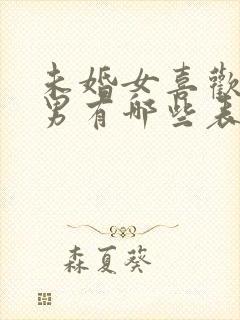 未婚女喜歡
男有哪些表
森夏葵